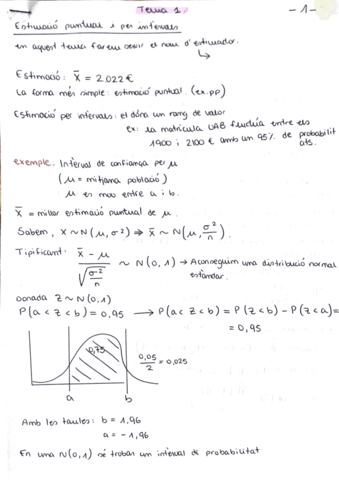 Tema 1.
- 1 -
Estimació puntual i per intervals
en aquest tema farem servir el nom d'estimador.
Estimació: X̄ = 2.022 €
La forma més simple: estimació puntual. (ex.pp)
Estimació per intervals: et dóna un rang de valor
ex: la matrícula UAB fluctúa entre els
1900 i 2100 € amb un 95% de probabilit
ats.
exemple. Interval de confiança per μ
(μ = mitjana població)
μ es mou entre a i b.
X̄ = millor estimació puntual de μ.
Sabem, X ~ N(μ, σ²) ⇒ X̄ ~ N(μ, σ²/n).
Tipificant: (X̄ - μ)/√(σ²/n) ~ N(0,1) → Aconseguim una distribució normal
estàndar.
Donada Z ~ N(0,1)
P(a < Z < b) = 0,95 → P(a < Z < b) = P(Z < b) - P(Z < a) =
= 0,95
0,75
0,05/2 = 0,025
a b
Amb les taules: b = 1,96
a = -1,96
En una N(0,1) sé trobar un interval de probabilitat